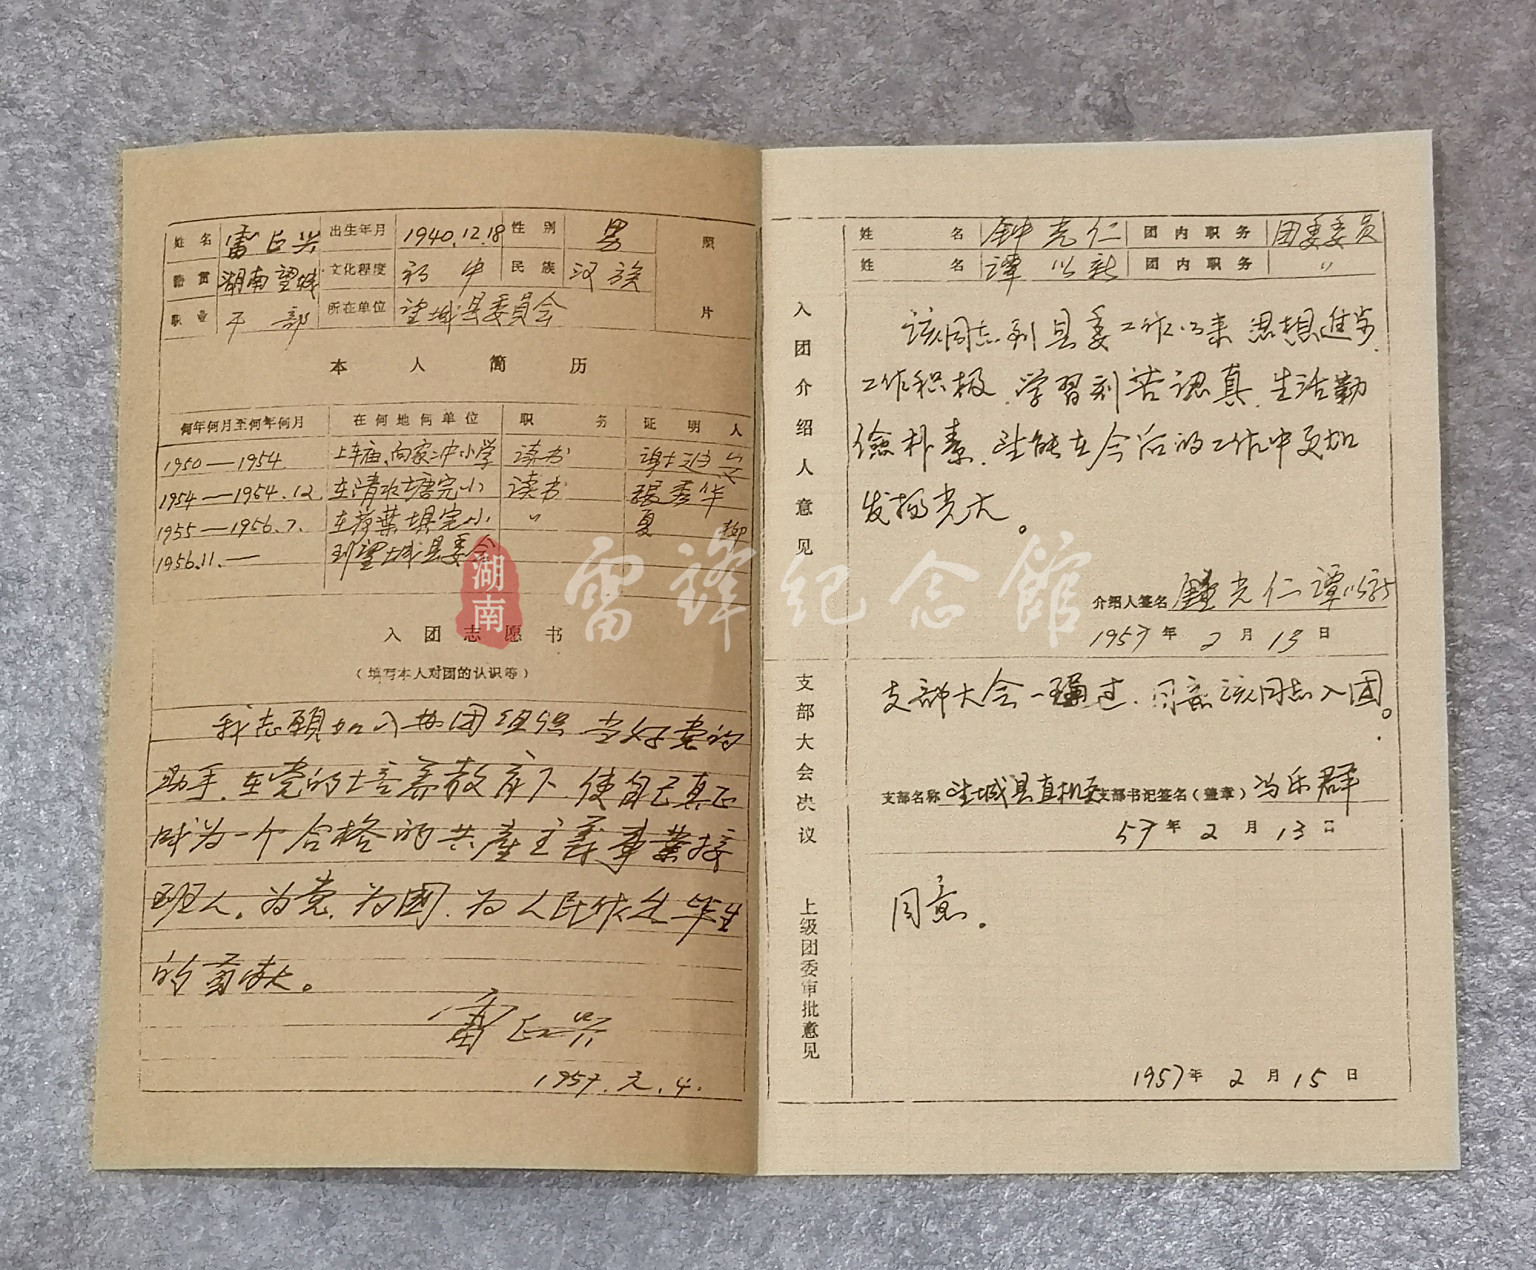 姓名 雷正兴 出生年月 1940.12.18 性别 男 照片
籍贯 湖南望城 文化程度 初中 民族 汉族
职业 干部 所在单位 望城县委員会
本人简历
何年何月至何年何月 在何地何单位 职务 证明人
1950—1954 上车庙、向家冲小学 读书
1954—1954.12 在清水塘完小 读书
1955—1956.7. 在荷葉垻完小 〃 夏
1956.11.— 到望城县委会
入团志愿书
（填写本人对团的认识等）
我志願加入 团组织 当好党的
助手，在党的培养教育下，使自已真正
成为一个合格的共產主義事業接
班人。为党、为國、为人民作出畢生
的貢献。
雷正兴
1957.元.4.
姓名 钟光仁 团内职务 团委委员
姓名 谭以新 团内职务 〃
入团介绍人意见
该同志到县委工作以来 思想進步、
工作积极、学習刻苦認真、生活勤
儉朴素、望能在今后的工作中更加
发揚光大。
介绍人签名 鍾光仁 譚以新
1957年2月13日
支部大会决议
支部大会一致通过，同意该同志入团。
支部名称 望城县直机委 支部书记签名（盖章） 冯乐群
57年2月13日
上级团委审批意见
同意。
1957年2月15日
湖南
雷锋纪念館